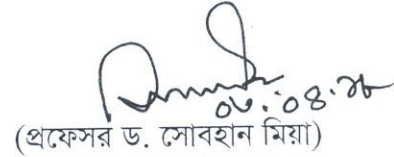 ০৬.০৪.২৮
(প্রফেসর ড. সোবহান মিয়া)